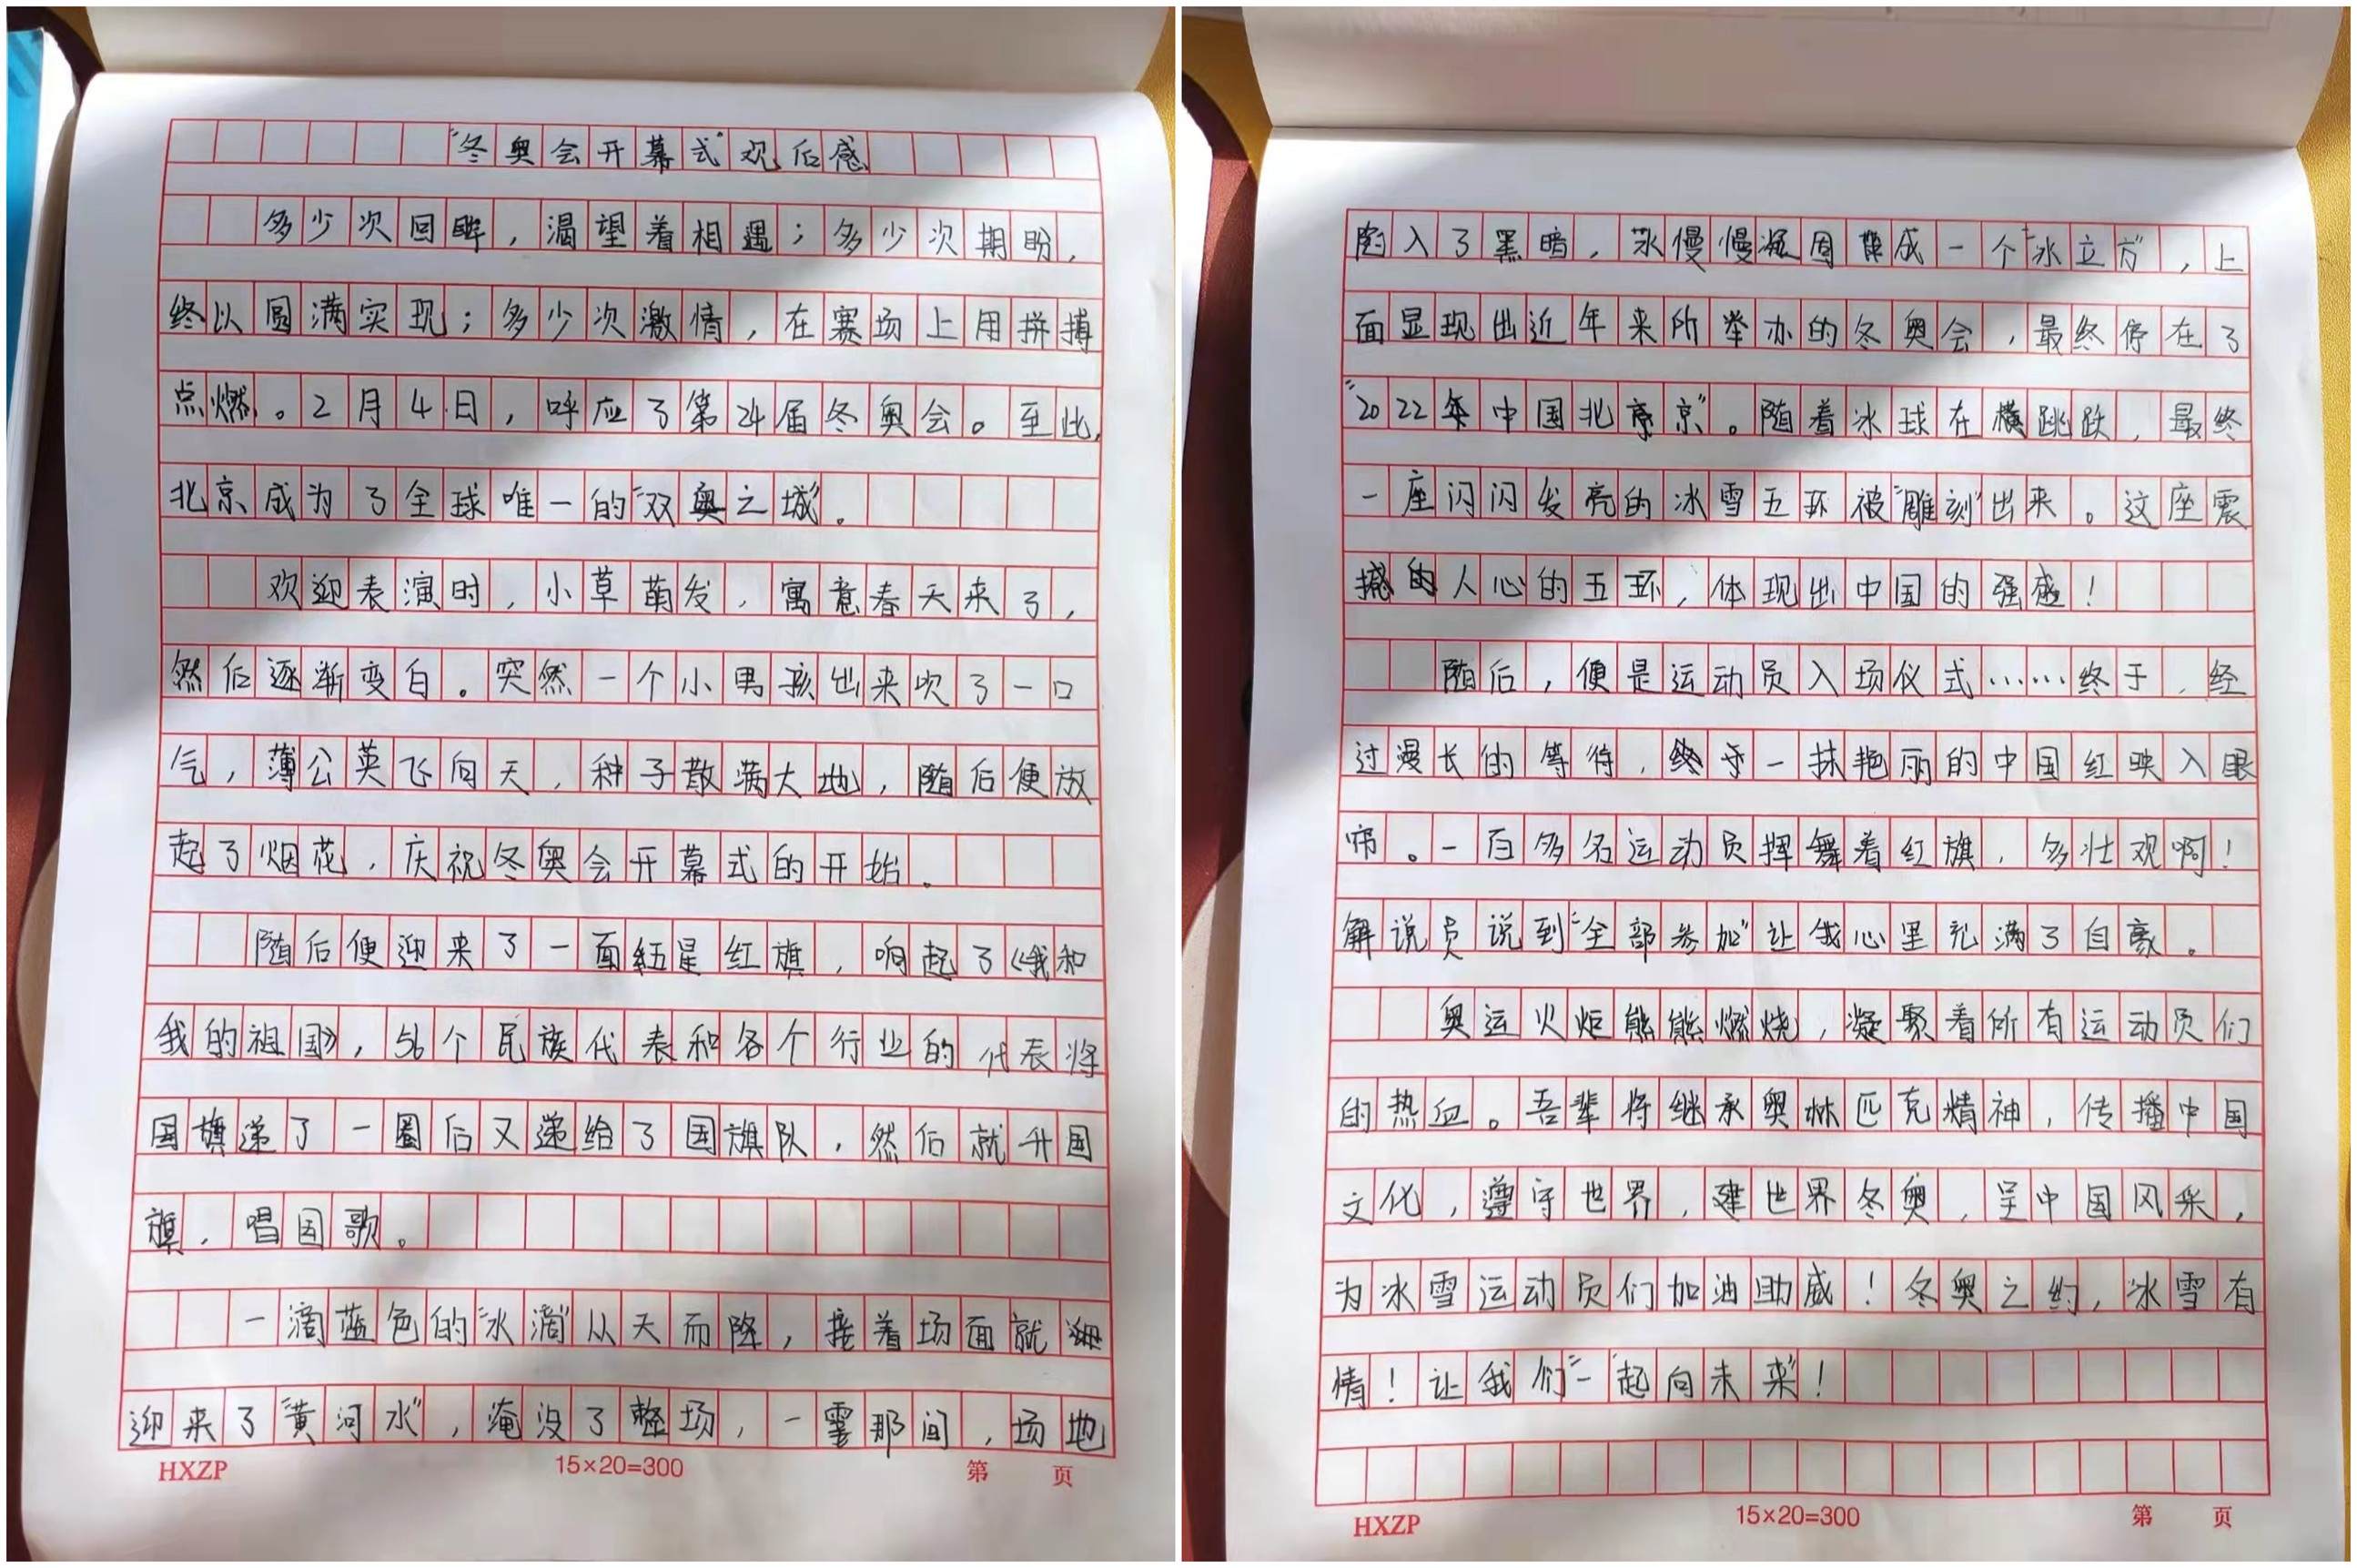 “冬奥会开幕式”观后感
多少次回眸，渴望着相遇；多少次期盼，
终以圆满实现；多少次激情，在赛场上用拼搏
点燃。2月4日，呼应了第24届冬奥会。至此，
北京成为了全球唯一的“双奥之城”。
欢迎表演时，小草萌发，寓意春天来了，
然后逐渐变白。突然一个小男孩出来吹了一口
气，薄公英飞向天，种子散满大地，随后便放
起了烟花，庆祝冬奥会开幕式的开始。
随后便迎来了一面五星红旗，响起了《我和
我的祖国》，56个民族代表和各个行业的代表将
国旗递了一圈后又递给了国旗队，然后就升国
旗，唱国歌。
一滴蓝色的“冰滴”从天而降，接着场面就
迎来了“黄河水”，淹没了整场，一霎那间，场地
陷入了黑暗，冰慢慢凝固成一个“冰立方”，上
面显现出近年来所举办的冬奥会，最终停在了
“2022年中国北京”。随着冰球在横跳跃，最终
一座闪闪发亮的冰雪五环被“雕刻”出来。这座震
撼人心的五环，体现出中国的强盛！
随后，便是运动员入场仪式……终于，经
过漫长的等待，一抹艳丽的中国红映入眼
帘。一百多名运动员挥舞着红旗，多壮观啊！
解说员说到“全部参加”让我心里充满了自豪。
奥运火炬熊熊燃烧，凝聚着所有运动员们
的热血。吾辈将继承奥林匹克精神，传播中国
文化，遵守世界，建世界冬奥，呈中国风采，
为冰雪运动员们加油助威！冬奥之约，冰雪有
情！让我们“一起向未来”！
HXZP
15×20=300
第 页
HXZP
15×20=300
第 页